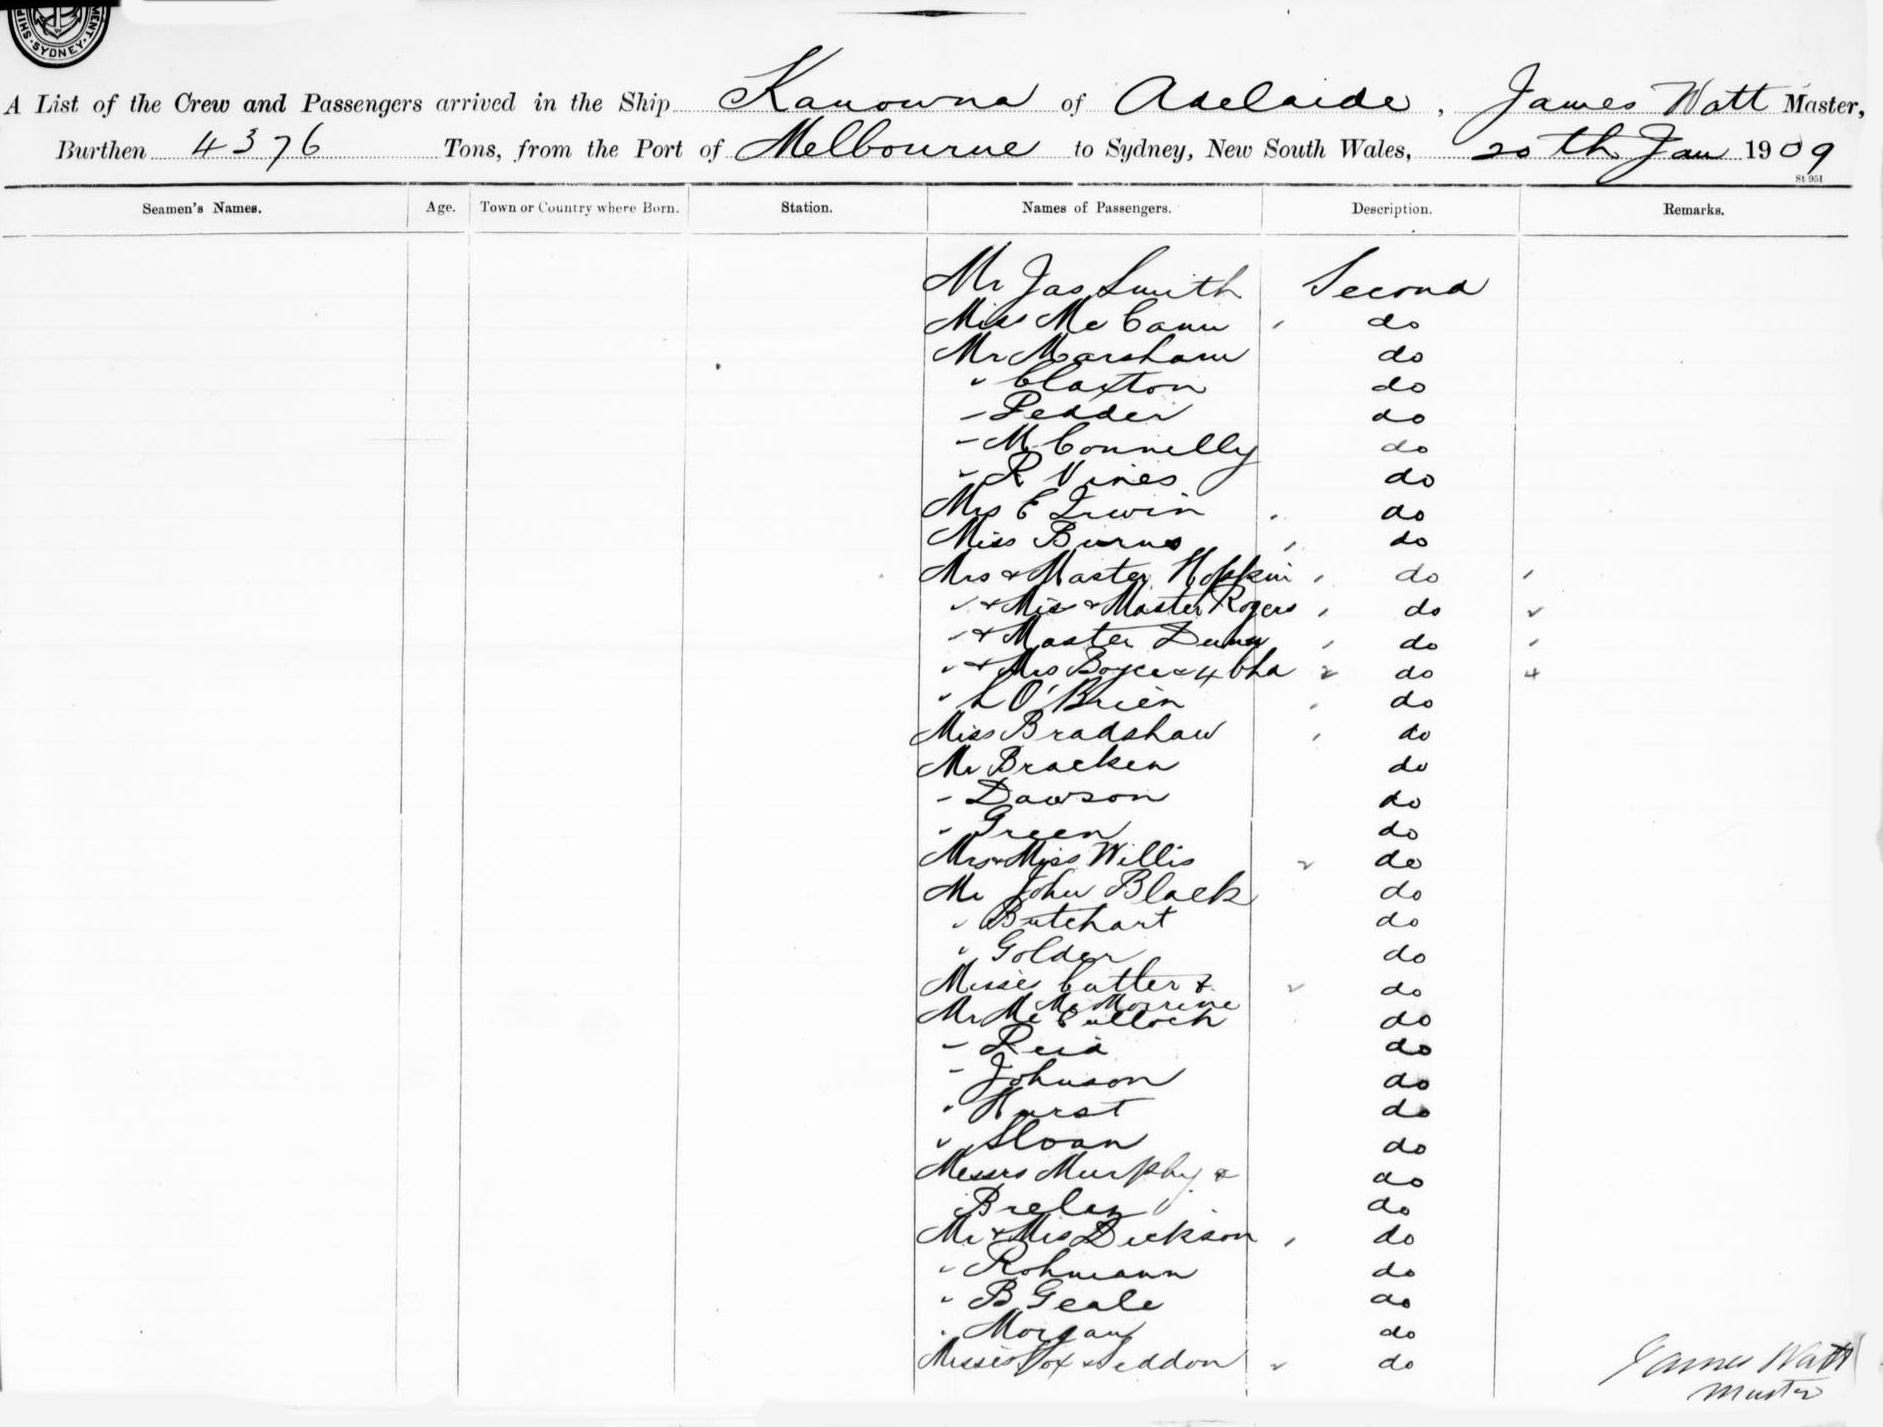 SYDNEY
A List of the Crew and Passengers arrived in the Ship Kanowna of Adelaide, James Watt Master,
Burthen 4376 Tons, from the Port of Melbourne to Sydney, New South Wales, 20th Jan 1909
St 951
Seamen's Names. Age. Town or Country where Born. Station. Names of Passengers. Description. Remarks.
Mr Jas Smith Second
Miss McCann ' do
Mr Marsham do
" Claxton do
" Pedder do
" M Connelly do
" R Vines do
Mrs E Irwin ' do
Miss Burns ' do
Mrs & Master Hopkin ' do '
" & Miss & Master Rogers ' do 2
" & Master Dunn ' do '
" & Mrs Boyce & 4 Chd 2 do 4
" L O'Brien ' do
Miss Bradshaw ' do
Mr Bracken do
" Dawson do
" Green do
Mrs & Miss Willis 2 do
Mr John Black do
" Butchart do
" Golder do
Misses Cutler & 2 do
Mc
Mr McCulloch do
" Reid do
" Johnson do
" Hurst do
" Sloan do
Messrs Murphy & do
do
Mr & Mrs Dickson ' do
" Rohmann do
" B Geale do
" Morgan do
Misses Fox & Seddon 2 do
James Watt
Master